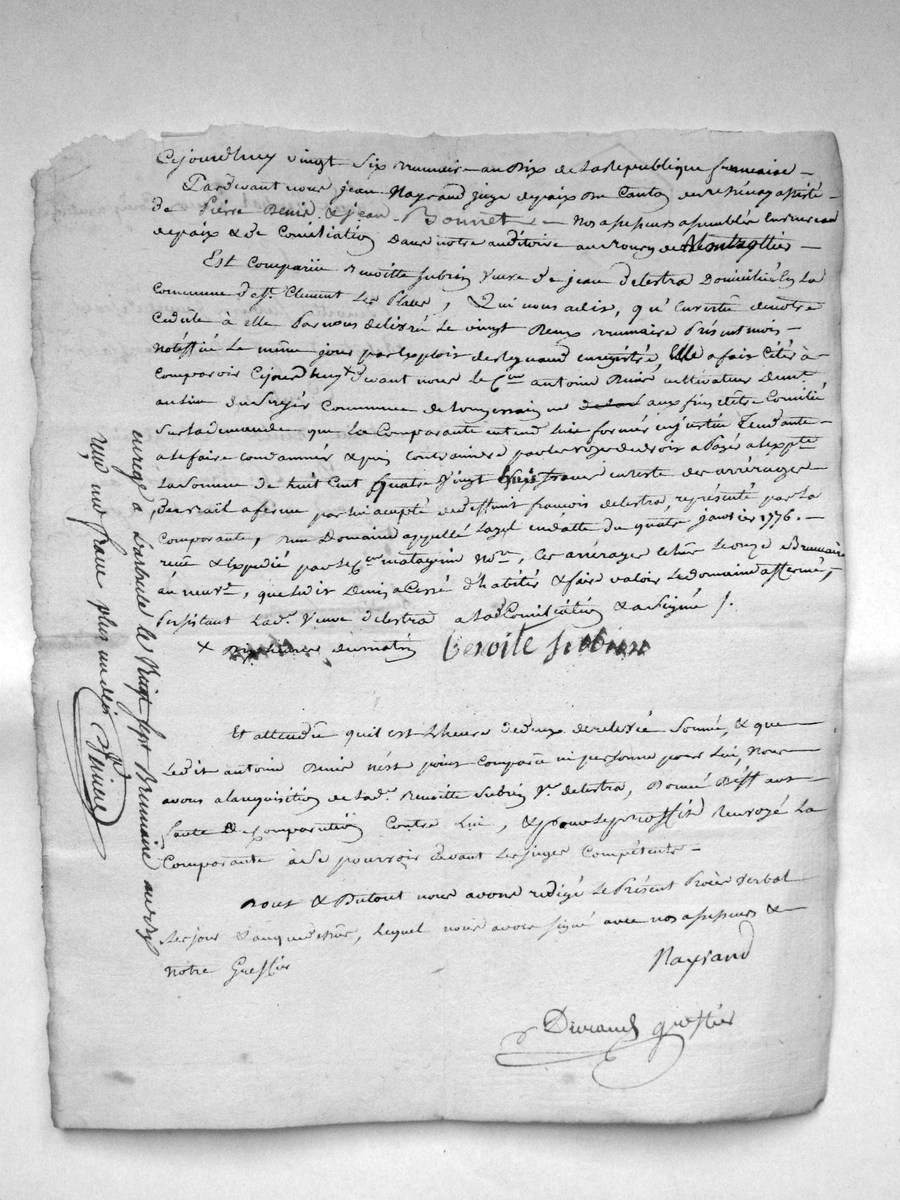 Cejourdhuy vingt six brumaire an dix de la Republique francaise
Pardevant nous jean Nayrand juge de paix du Canton de assisté
de Pierre Denis & jean Bonnet nos assesseurs assemblés en bureau
de paix & de Conciliation dans notre auditoire au bourg de Montrottier
Est Comparüe Benoitte Subrin veuve de jean delestra domiciliée en la
Commune de St. Clement Les Places, Qui nous a dit, qu'en vertu de notre
Cedule à elle Par nous delivrée Le vingt deux brumaire Présent mois
notiffié Le même jour par Exploit de enregistré, Elle a fait Citer à
Comparoir Cejourdhuy devant nous le Cen antoine Denis cultivateur demt
au lieu du Commune de aux fins d'être Concilié
Sur la demande que La Comparante entend lui former en justice Tendante
a le faire Condamner & par les voyes de droit a Payer
La Somme de huit Cent Quatre Vingt francs en reste des arrérages
du bail a ferme par lui de deffunt francois delestra, représenté par La
Comparante, d'un Domaine appellé en datte du quatre janvier 1776.
recu & Expedié par Me. Nre, Ces arrérages échus Le onze Brumaire
an neuf, que ledit Denis a Cessé d'habiter & faire valoir Le domaine affermé,
Persistant Lade. Veuve delestra a la de Conciliation & a Signé /.
du matin Benoite subrin
Et attendu qu'il est L'heure de deux de relevée Sonnée, & que
Ledit antoine Denis n'est point Comparu ni personne pour Lui, Nous
avons a la requisition de lade. Benoitte Subrin ve. delestra, Donné deffaut
faute de Comparution Contre Lui, & pour le proffit Renvoyé La
Comparante à Se pourvoir devant Les juges Compétents
Dont & Dutout nous avons redigé Le Présent Procès Verbal
Les jour & an que dessus, Lequel nous avons Signé avec nos assesseurs &
notre Greffier
Nayrand
Durand greffier
enregé a Larbresle le Vingt Sept Brumaire an dix
reçu un franc plus un dixe